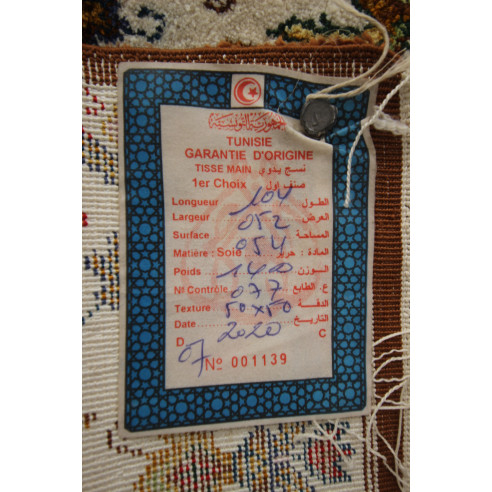 الجمهورية التونسية
TUNISIE
GARANTIE D'ORIGINE
TISSE MAIN نسج يدوي
1er Choix صنف أول
Longueur 104 الطول
Largeur 052 العرض
Surface 054 المساحة
Matière : Soie المادة : حرير
Poids 1400 الوزن
Nf Contrôle 077 ع. الطابع
Texture 50x50 الدقة
Date 2020 التاريخ
D 07 C
No 001139